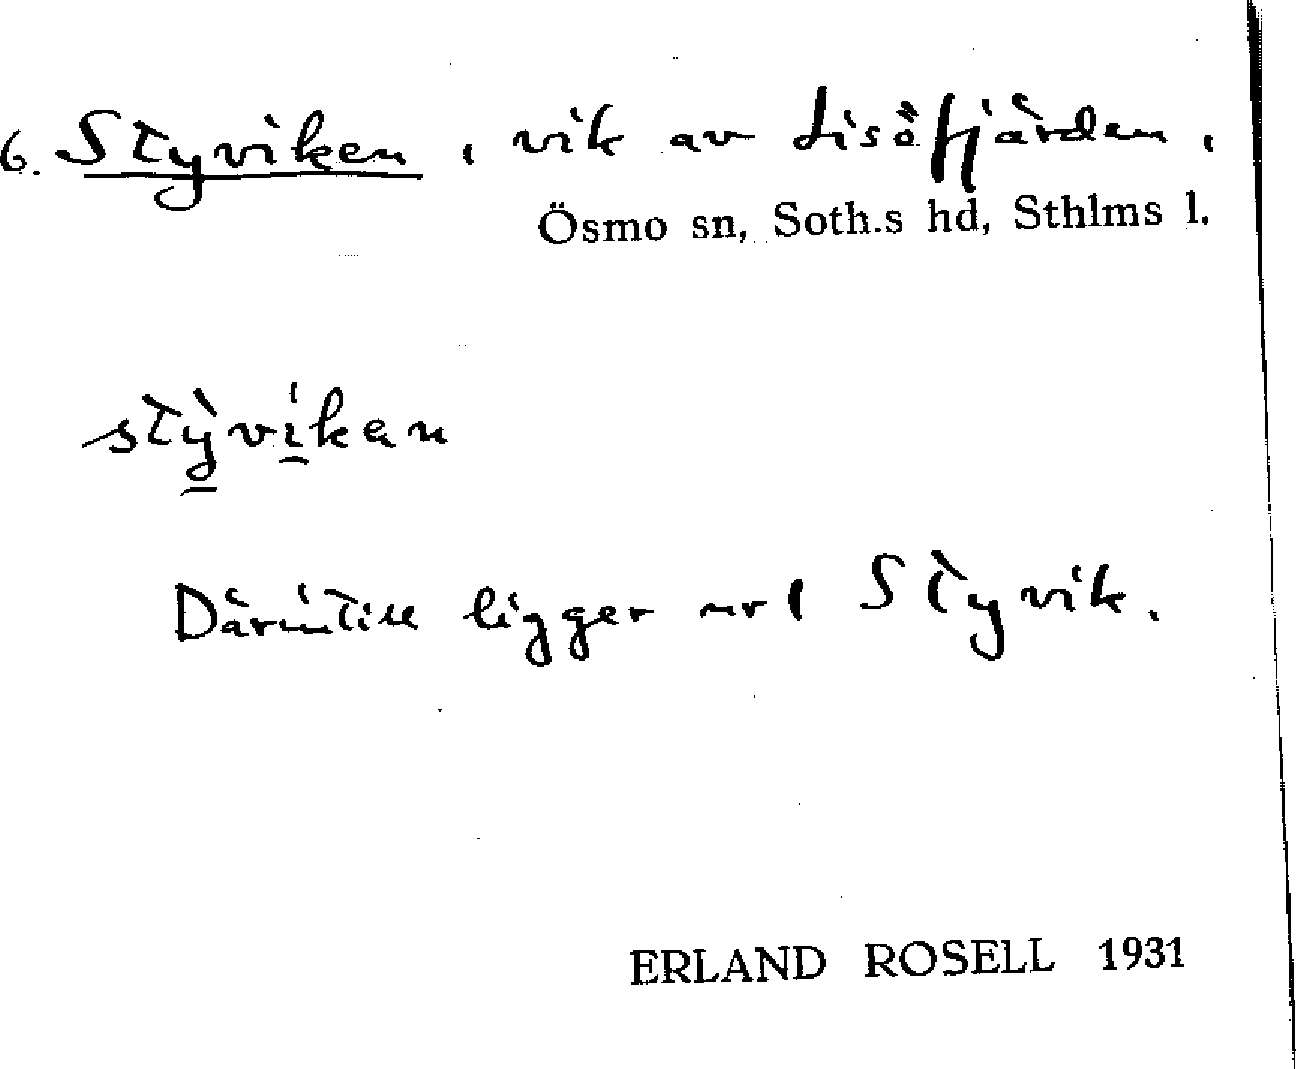 6. Styviken, vik av Lisöfjärden,
Ösmo sn, Soth.s hd, Sthlms l.
stỳvíkan
Därintill ligger nr 1 Styvik.
ERLAND ROSELL 1931